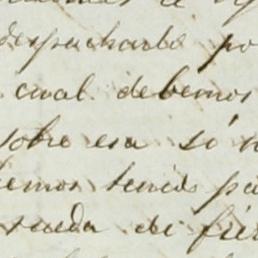 despacharlo po
cual debemos
sobre esa só
emos tenido pa
rueda de fier